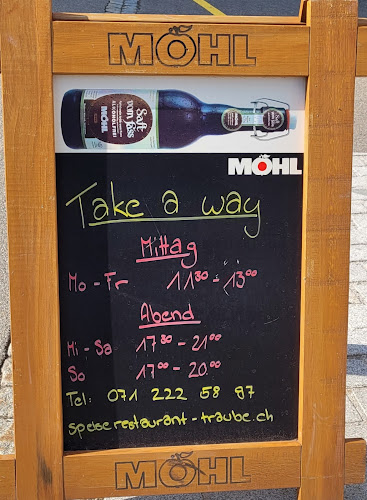 MÖHL
Saft
vom Fass
ALKOHOLFREI
MÖHL
MÖHL
Take a way
Mittag
Mo - Fr 11³⁰ - 13⁰⁰
Abend
Mi - Sa 17³⁰ - 21⁰⁰
So 17⁰⁰ - 20⁰⁰
Tel: 071 222 58 97
speiserestaurant-traube.ch
MÖHL